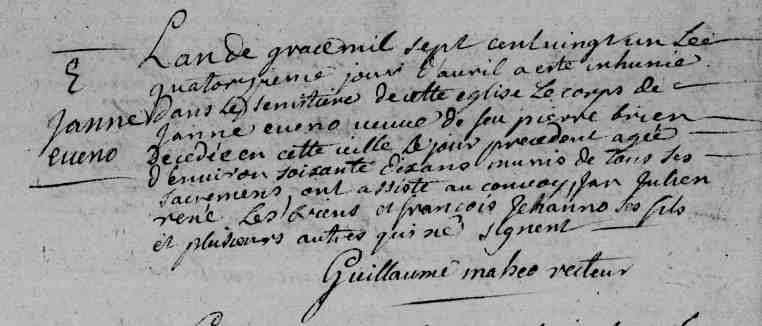 E
janne
eveno
Lan de grace mil sept cent vingt un Le
quatorzieme jour d'avril a esté inhumée
dans Le semitiere de cette eglise Le corps de
janne eveno veuve de feu pierre brien
decedée en cette ville Le jour precedent agée
d'environ soixante dix ans munis de tous ses
sacremens ont assisté au convoy Jan Julien
rené Les briens et francois Jehanno ses fils
et plusieurs autres qui ne signent
Guillaume maheo recteur